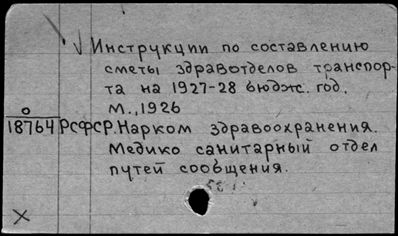 Инструкции по составлению
сметы здравотделов транспор-
та на 1927-28 бюдж. год.
М., 1926
0
18764 РСФСР. Нарком здравоохранения.
Медико санитарный отдел
путей сообщения.
X